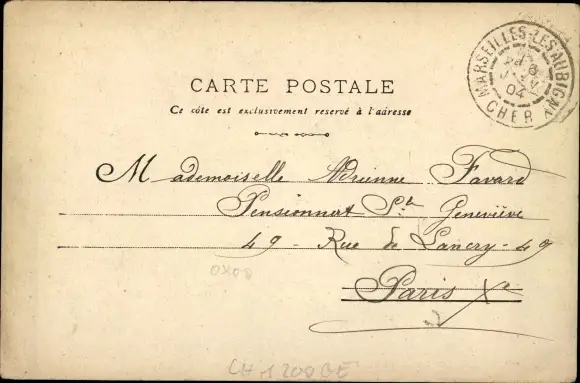 CARTE POSTALE
Ce côté est exclusivement reservé à l'adresse
MARSEILLES-LES-AUBIGNY
6
04
CHER
Mademoiselle Adrienne Favard
Pensionnat Ste Geneviève
49 - Rue de Lancry - 49
Paris Xe
0X00